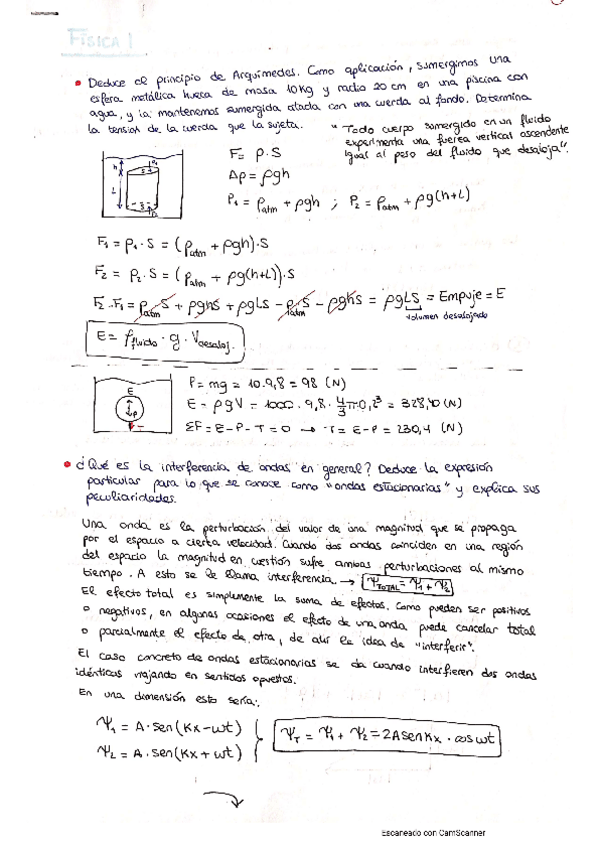 FÍSICA I
• Deduce el principio de Arquímedes. Como aplicación, sumergimos una
esfera metálica hueca de masa 10Kg y radio 20 cm en una piscina con
agua, y la mantenemos sumergida atada con una cuerda al fondo. Determina
la tensión de la cuerda que la sujeta.
"Todo cuerpo sumergido en un fluido
experimenta una fuerza vertical ascendente
igual al peso del fluido que desaloja".
h
L
S
F = P·S
Δp = ρgh
P₁ = Patm + ρgh ; P₂ = Patm + ρg(h+L)
F₁ = p₁·S = (Patm + ρgh)·S
F₂ = p₂·S = (Patm + ρg(h+L))·S
F₂-F₁ = Patm S + ρghS + ρgLS - Patm S - ρghS = ρgLS = Empuje = E
volumen desalojado
E = ρfluido · g · Vdesaloj.
E
P
T
P = mg = 10·9,8 = 98 (N)
E = ρgV = 1000·9,8·4/3π·0,2³ = 328,40 (N)
ΣF = E-P-T = 0 → T = E-P = 230,4 (N)
• ¿Qué es la interferencia de ondas en general? Deduce la expresión
particular para lo que se conoce como "ondas estacionarias" y explica sus
peculiaridades.
Una onda es la perturbación del valor de una magnitud que se propaga
por el espacio a cierta velocidad. Cuando dos ondas coinciden en una región
del espacio la magnitud en cuestión sufre ambas perturbaciones al mismo
tiempo. A esto se le llama interferencia. → ΨTOTAL = Ψ₁ + Ψ₂
El efecto total es simplemente la suma de efectos. Como pueden ser positivos
o negativos, en algunas ocasiones el efecto de una onda puede cancelar total
o parcialmente el efecto de otra, de ahí la idea de "interferir".
El caso concreto de ondas estacionarias se da cuando interfieren dos ondas
idénticas viajando en sentidos opuestos.
En una dimensión esto sería:
Ψ₁ = A·sen(Kx-ωt)
Ψ₂ = A·sen(Kx+ωt)
ΨT = Ψ₁ + Ψ₂ = 2A senKx · cos ωt
Escaneado con CamScanner